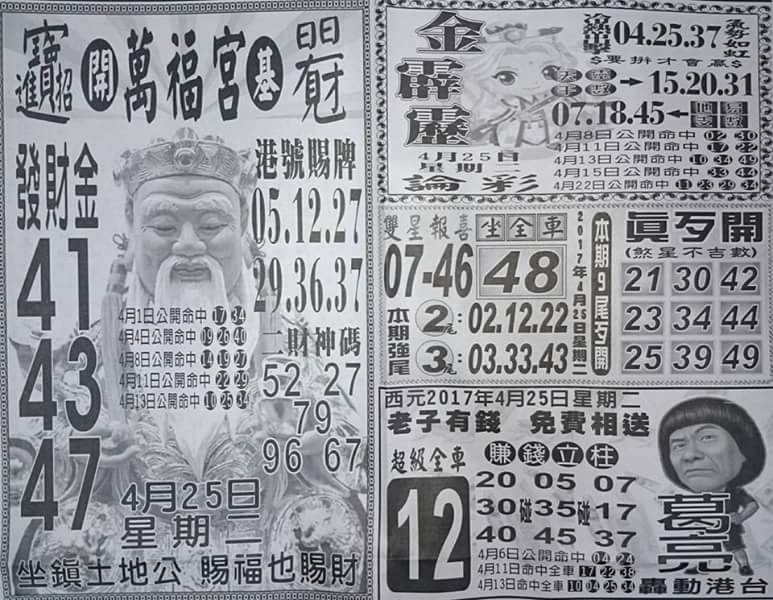 招財進寶 開 萬福宮 基
港號賜牌
發財金
05.12.27
29.36.37
41
43
47
4月1日公開命中 17 34
4月4日公開命中 09 26 40
4月8日公開命中 14 19 27
4月11日公開命中 22 29
4月13日公開命中 10 25 34
二財神碼
52 27
79
96 67
4月25日
星期二
坐鎮土地公 賜福也賜財
金霹靂
04.25.37
氣勢如虹
$要拼才會贏$
15.20.31
07.18.45
4月25日
星期二
論彩
4月8日公開命中 02 30
4月11日公開命中 17 22
4月13日公開命中 10 34 49
4月15日公開命中 33 44
4月22日公開命中 11 23 29 34
雙星報喜 坐全車
07-46 48
本期強尾
2尾:02.12.22
3尾:03.33.43
2017年4月25日星期二
本期9尾歹開
真歹開
(煞星不吉數)
21 30 42
23 34 44
25 39 49
西元2017年4月25日星期二
老子有錢 免費相送
超級全車
12
賺錢立柱
20 05 07
30碰35碰17
40 45 37
4月6日公開命中 04 24
4月11日命中全車 17 22 38
4月13日命中全車 10 04 25 34
葛亮
轟動港台